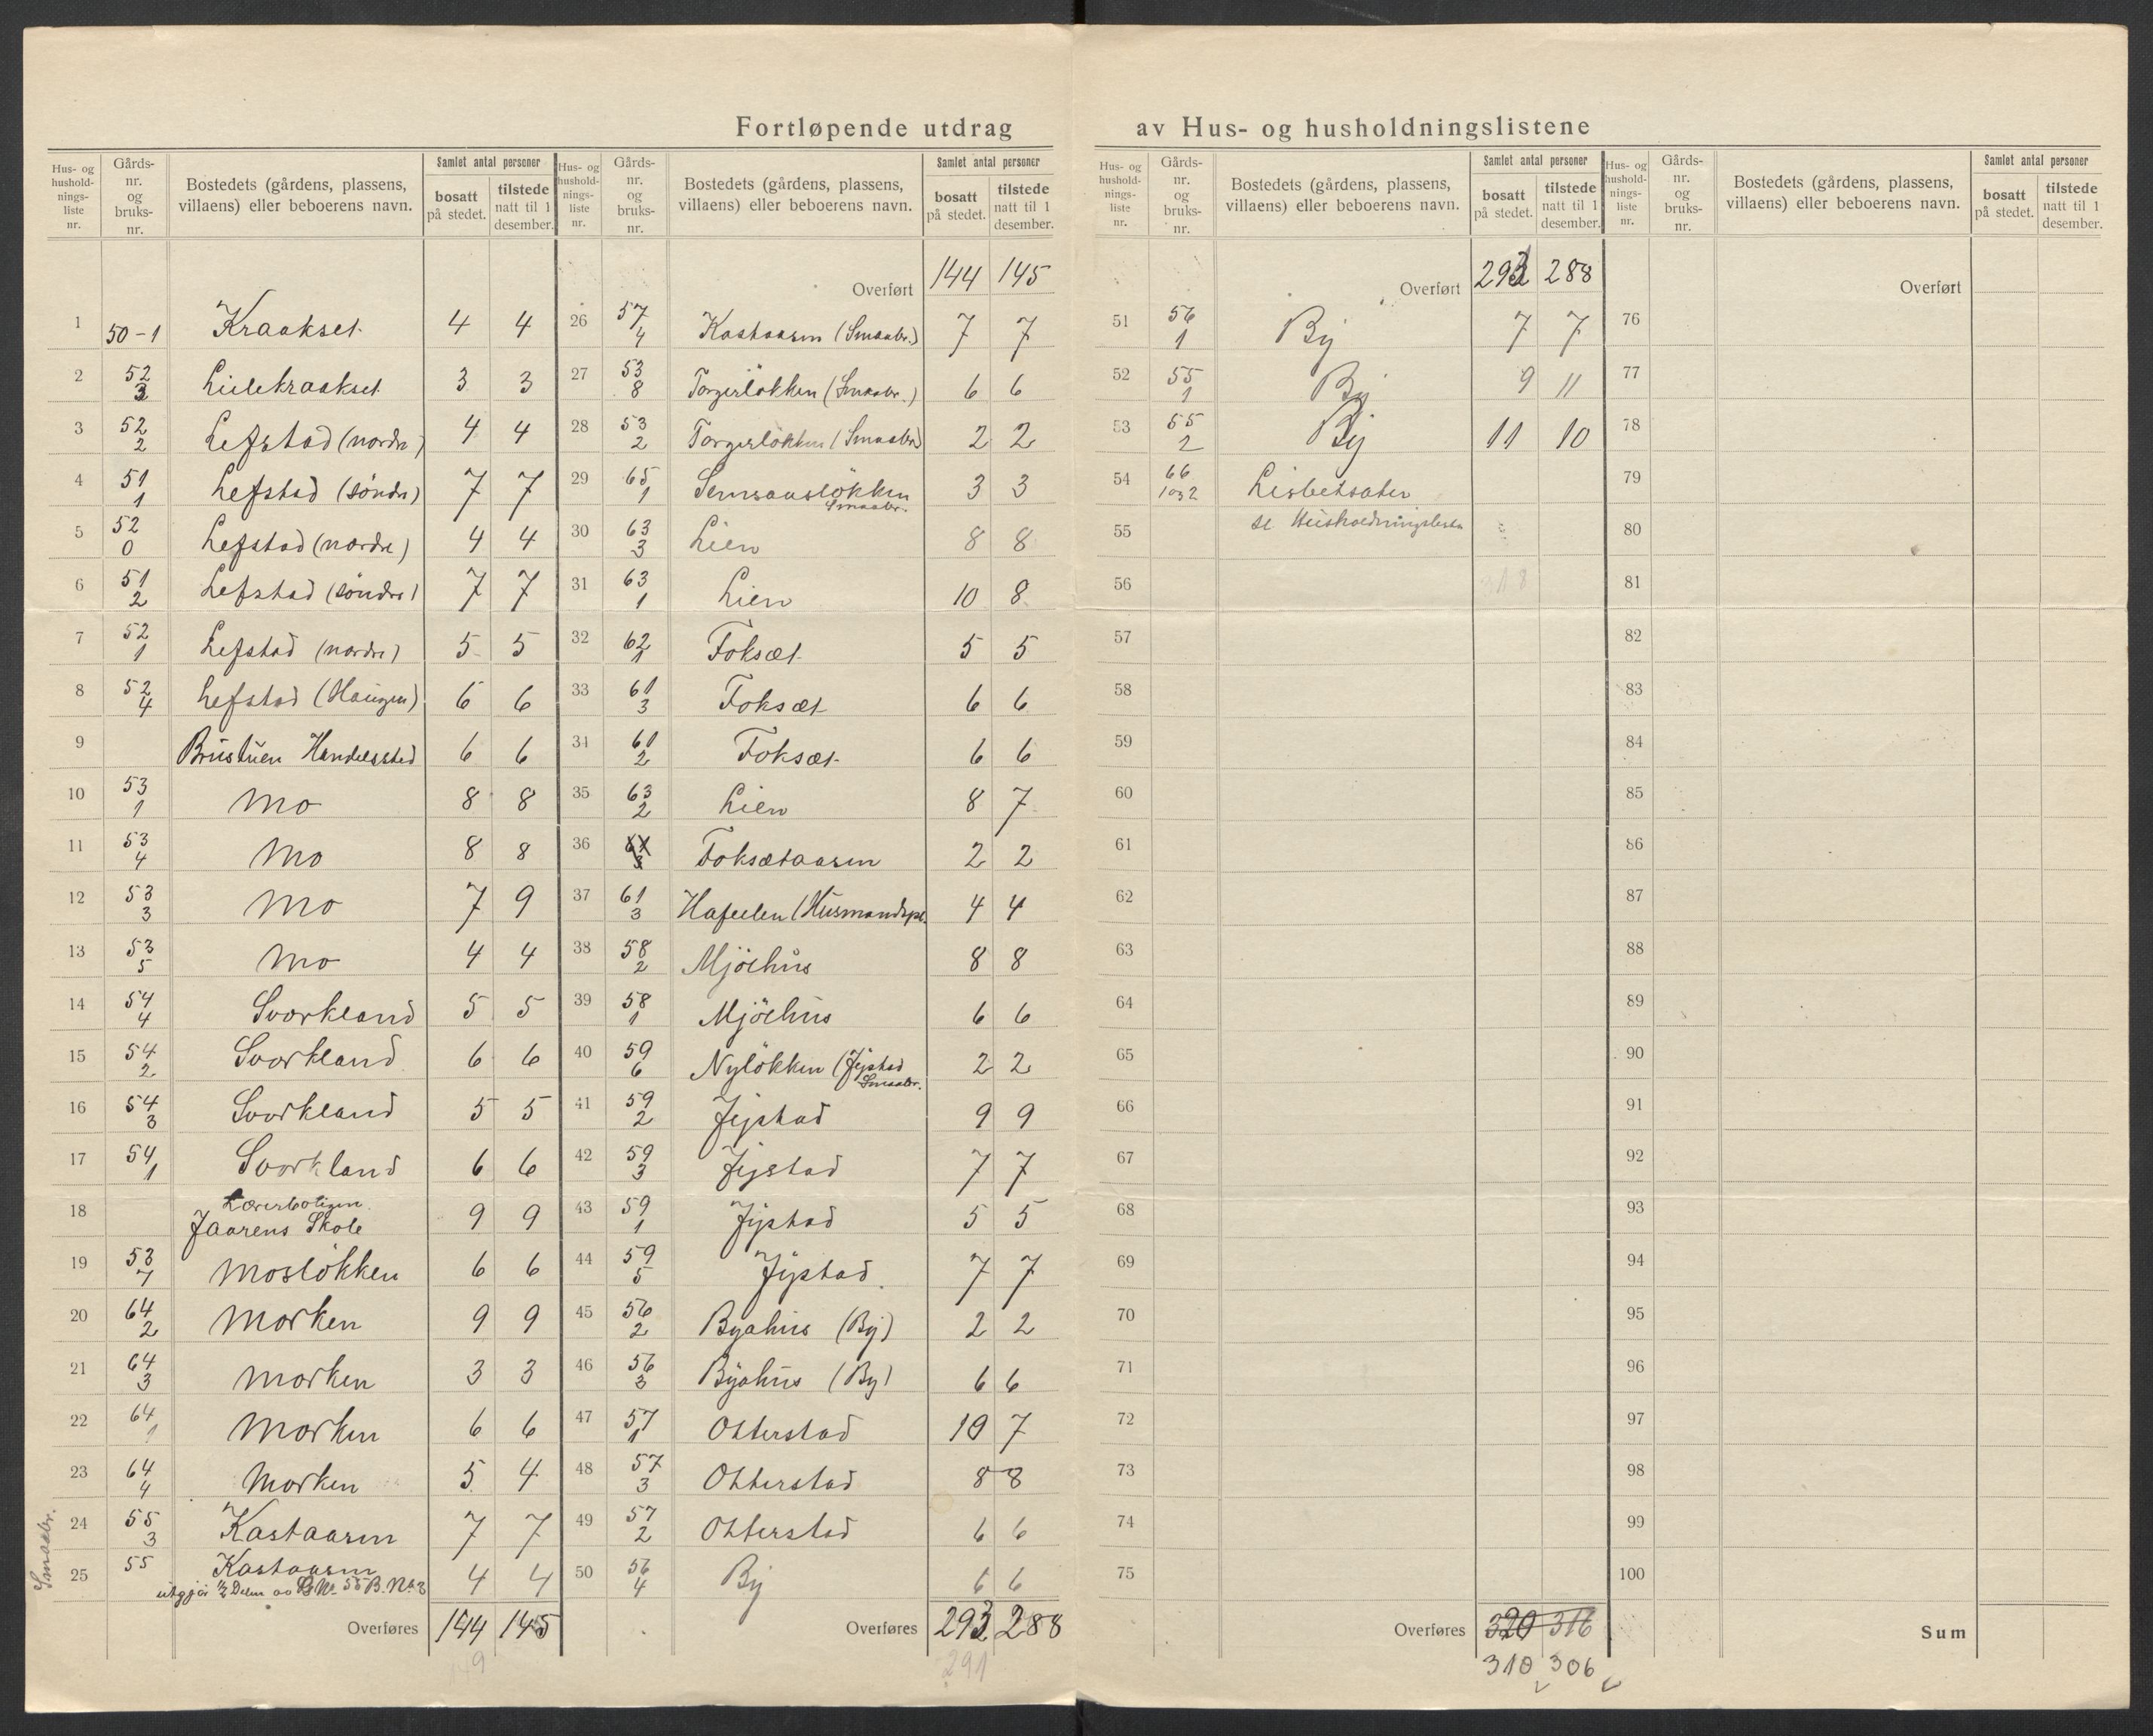 Fortløpende utdrag av Hus- og husholdningslistene
Hus- og hushold-nings-liste nr. | Gårds-nr. og bruks-nr. | Bostedets (gårdens, plassens, villaens) eller beboerens navn. | Samlet antal personer: bosatt på stedet. | tilstede natt til 1 desember.
1 50-1 Kraakset 4 4
2 52 3 Lillekraakset 3 3
3 52 2 Lefstad (nordre) 4 4
4 51 1 Lefstad (söndre) 7 7
5 52 0 Lefstad (nordre) 4 4
6 51 2 Lefstad (söndre) 7 7
7 52 1 Lefstad (nordre) 5 5
8 52 4 Lefstad (Haugen) 6 6
9 Brustuen Handelssted 6 6
10 53 1 Mo 8 8
11 53 4 Mo 8 8
12 53 3 Mo 7 9
13 53 5 Mo 4 4
14 54 4 Svorkland 5 5
15 54 2 Svorkland 6 6
16 54 3 Svorkland 5 5
17 54 1 Svorkland 6 6
18 Lærerboligen.
Jaarens Skole 9 9
19 53 7 Moslökken 6 6
20 64 2 Morken 9 9
21 64 3 Morken 3 3
22 64 1 Morken 6 6
23 64 4 Morken 5 4
Smaabr.
24 55 3 Kastaasen 7 7
25 55 Kastaasen 4 4
utgjör 1/2 Delen av G.Nr. 55 B.Nr. 3
Overføres 144 145
Hus- og hushold-nings-liste nr. | Gårds-nr. og bruks-nr. | Bostedets (gårdens, plassens, villaens) eller beboerens navn. | Samlet antal personer: bosatt på stedet. | tilstede natt til 1 desember.
Overført 144 145
26 57 4 Kastaasen (Smaabr.) 7 7
27 53 8 Torgerlökken (Smaabr.) 6 6
28 53 2 Torgerlökken (Smaabr.) 2 2
29 65 1 Semsaaslökken 3 3
Smaabr.
30 63 3 Lien 8 8
31 63 1 Lien 10 8
32 62 1 Foksæt 5 5
33 61 3 Foksæt 6 6
34 61 2 Foksæt 6 6
35 63 2 Lien 8 7
36 Foksætaasen 2 2
37 61 3 Hafellen (Husmandspl. 4 4
38 58 2 Mjöehus 8 8
39 58 1 Mjöehus 6 6
40 59 6 Nylökken (Jystad 2 2
Smaabr.
41 59 2 Jystad 9 9
42 59 3 Jystad 7 7
43 59 1 Jystad 5 5
44 59 5 Jystad. 7 7
45 56 2 Byahus (By) 2 2
46 56 3 Byahus (By) 6 6
47 57 1 Otterstad 10 7
48 57 3 Otterstad 8 8
49 57 2 Otterstad 6 6
50 56 4 By 6 6
Overføres 293 288
291
Hus- og hushold-nings-liste nr. | Gårds-nr. og bruks-nr. | Bostedets (gårdens, plassens, villaens) eller beboerens navn. | Samlet antal personer: bosatt på stedet. | tilstede natt til 1 desember.
Overført 293 288
51 56 1 By 7 7
52 55 1 By 9 11
53 55 2 By 11 10
54 66 1 og 2 Lisbetsæter
55 se Husholdningslista
56
57
58
59
60
61
62
63
64
65
66
67
68
69
70
71
72
73
74
75
Overføres 320 316
310 306
Hus- og hushold-nings-liste nr. | Gårds-nr. og bruks-nr. | Bostedets (gårdens, plassens, villaens) eller beboerens navn. | Samlet antal personer: bosatt på stedet. | tilstede natt til 1 desember.
Overført
76
77
78
79
80
81
82
83
84
85
86
87
88
89
90
91
92
93
94
95
96
97
98
99
100
Sum